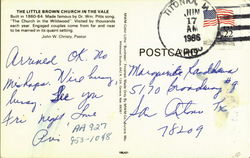 THE LITTLE BROWN CHURCH IN THE VALE
Built in 1860-64. Made famous by Dr. Wm. Pitts song,
"The Church in the Wildwood". Visited by thousands
each year. Engaged couples come from far and near
to be married in its quaint setting.
John W. Christy, Pastor
POSTCARD
JUN
17
AM
1986
USA
22
Arrived OK. No
mishaps.
away. See you
Fri
AA 927
953-1098
Marguerite
5170 Broadway
San Antonio Tx
78209